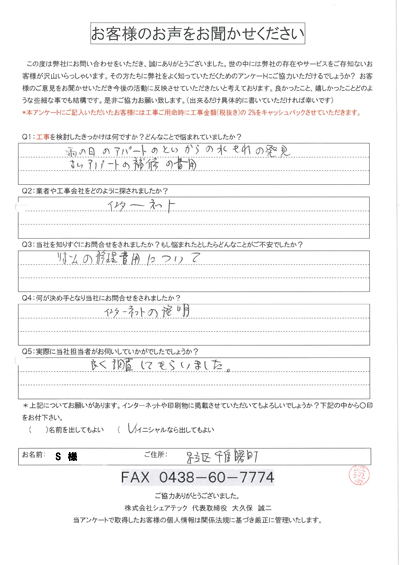 お客様のお声をお聞かせください
この度は弊社にお問い合わせをいただき、誠にありがとうございました。世の中には弊社の存在やサービスをご存知ないお
客様が沢山いらっしゃいます。その方たちに弊社をよく知っていただくためのアンケートにご協力いただけるでしょうか？ お客
様のご意見をお聞かせいただき今後の活動に反映させていただきたいと考えております。良かったこと、嬉しかったことどのよ
うな些細な事でも結構です。是非ご協力お願い致します。（出来るだけ具体的に書いていただければ幸いです）
*本アンケートにご記入いただいたお客様には工事ご用命時に工事金額(税抜き)の 2%をキャッシュバックさせていただきます。
Q1：工事を検討したきっかけは何ですか？どんなことで悩まれていましたか？
雨の日のアパートのといからの水もれの発見
古いアパートの補修の費用
Q2：業者や工事会社をどのように探されましたか？
インターネット
Q3：当社を知りすぐにお問合せをされましたか？もし悩まれたとしたらどんなことがご不安でしたか？
の修理費用について
Q4：何が決め手となり当社にお問合せをされましたか？
インターネットの説明
Q5：実際に当社担当者がお伺いしていかがでしたでしょうか？
良く調査してもらいました。
＊上記についてお願いがあります。インターネットや印刷物に掲載させていただいてもよろしいでしょうか？下記の中から〇印
をお付下さい。
（　）名前を出してもよい　（レ）イニシャルなら出してもよい
お名前： S 様　ご住所：
FAX 0438-60-7774
ご協力ありがとうございました。
株式会社シェアテック 代表取締役 大久保 誠二
当アンケートで取得したお客様の個人情報は関係法規に基づき厳正に管理いたします。